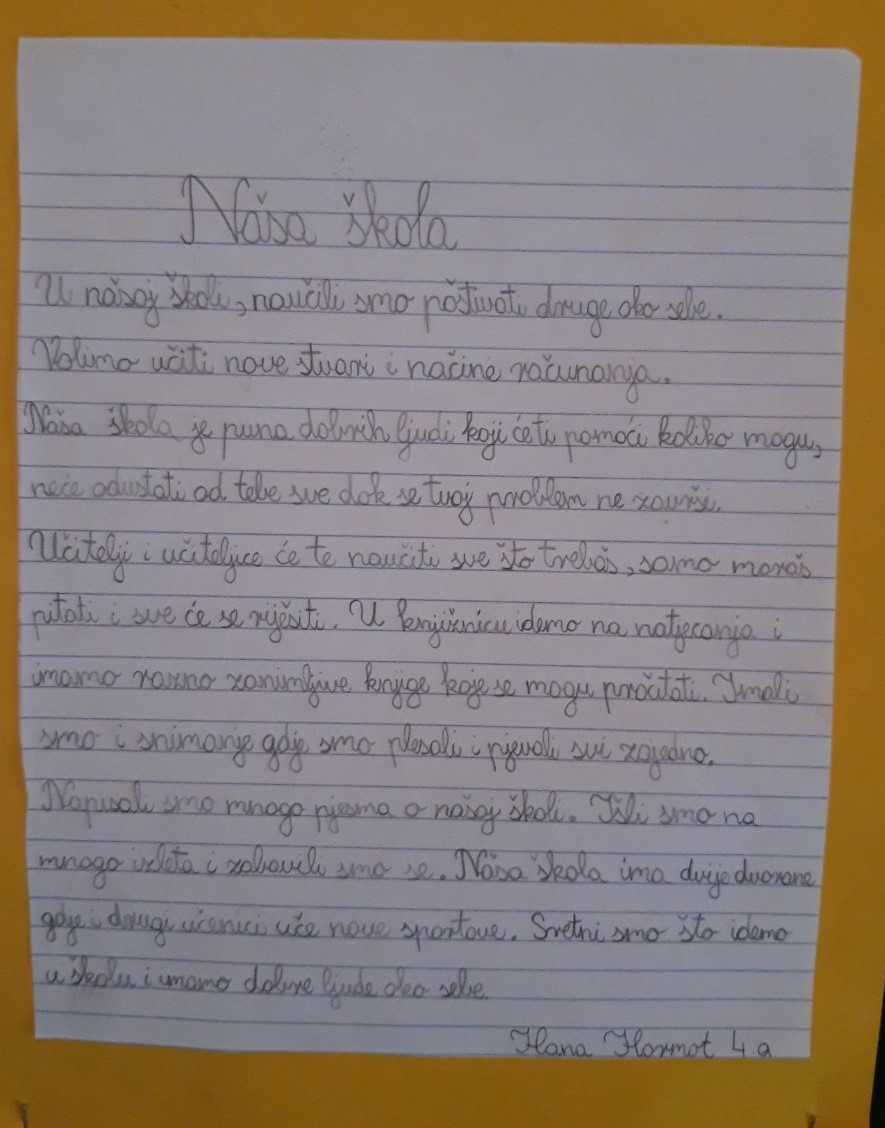 Naša škola
U našoj školi, naučili smo poštivati druge oko sebe.
Volimo učiti nove stvari i načine računanja.
Naša škola je puna dobrih ljudi koji će ti pomoći koliko mogu,
neće odustati od tebe sve dok se tvoj problem ne završi.
Učitelji i učiteljice će te naučiti sve što trebaš, samo moraš
pitati i sve će se riješiti. U knjižnicu idemo na natjecanja i
imamo razno zanimljive knjige koje se mogu pročitati. Imali
smo i snimanje gdje smo plesali i pjevali svi zajedno.
Napisali smo mnogo pjesma o našoj školi. Išli smo na
mnogo izleta i zabavili smo se. Naša škola ima dvije dvorane
gdje i drugi učenici uče nove sportove. Sretni smo što idemo
u školu i imamo dobre ljude oko sebe.
Hana Harmot 4.a